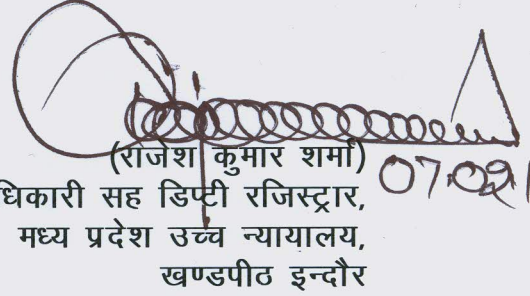 (राजेश कुमार शर्मा)
धिकारी सह डिप्टी रजिस्ट्रार,
07.02
मध्य प्रदेश उच्च न्यायालय,
खण्डपीठ इन्दौर